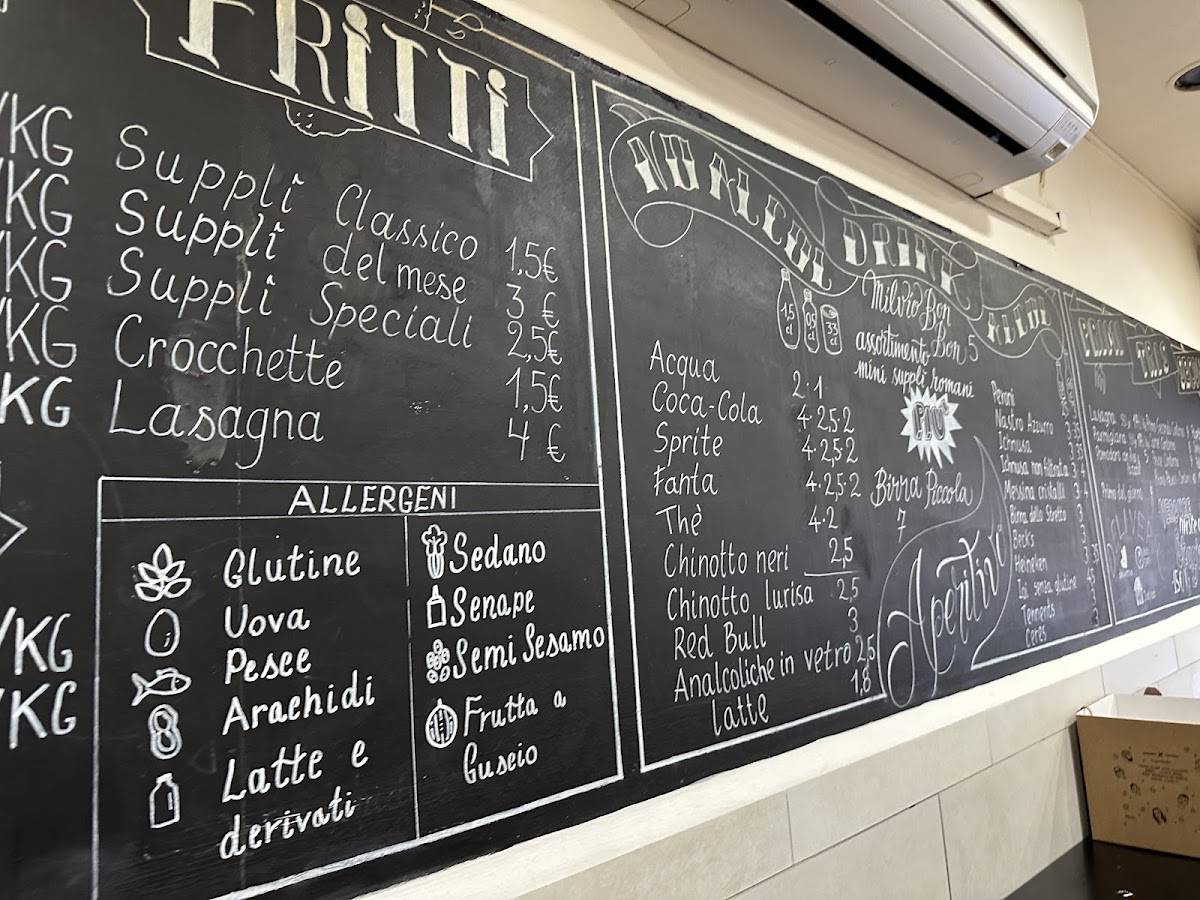 FRITTI
/KG
/KG
/KG
/KG
/KG
/KG
/KG
Supplì Classico 1,5€
Supplì del mese 3 €
Supplì Speciali 2,5€
Crocchette 1,5€
Lasagna 4 €
ALLERGENI
Glutine
Uova
Pesce
Arachidi
Latte e
derivati
Sedano
Senape
Semi Sesamo
Frutta a
Guscio
DRINK
1,5 cl
0,5 cl
33 cl
Acqua 2·1
Coca-Cola 4·2,5·2
Sprite 4·2,5·2
Fanta 4·2,5·2
Thè 4·2
Chinotto neri 2,5
Chinotto lurisa 2,5
Red Bull 3
Analcoliche in vetro 2,5
latte 1,8
Milvio Bon
Bon 5
assortimento
mini supplì romani
PIÙ
Birra Piccola
7
Aperitivi
Peroni
Nastro Azzurro
Ichnusa
Ichnusa non filtrata
Messina cristalli
Birra dello Stretto
Beck's
Heineken
senza glutine
Tennents
Ceres
Lasagna
Parmigiana
Pomodoro
Primo del giorno